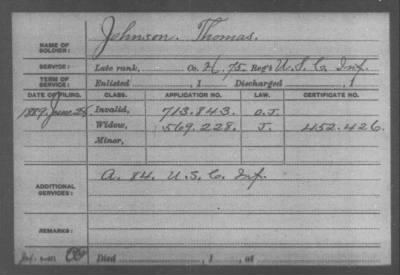 NAME OF SOLDIER: Johnson, Thomas.
SERVICE: Late rank, Co. H, 75 Reg't U.S.C. Inf.
TERM OF SERVICE: Enlisted , 1 Discharged , 1
DATE OF FILING. CLASS. APPLICATION NO. LAW. CERTIFICATE NO.
1889, June 25 Invalid, 713.843. O.J.
Widow, 569.228. J. 452.426.
Minor,
ADDITIONAL SERVICES: A. 84. U.S.C. Inf.
REMARKS:
Died , 1 , at